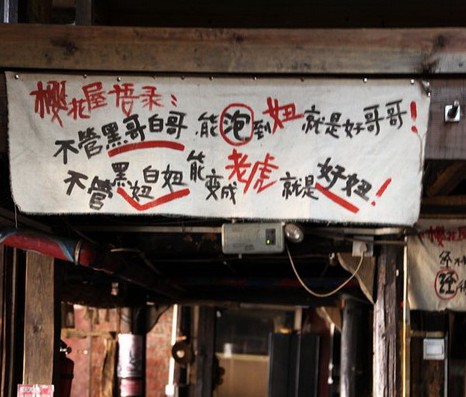 樱花屋语录：
不管黑哥白哥 能泡到妞 就是好哥哥！
不管黑妞白妞能变成老虎 就是好妞！
樱花屋
不
经